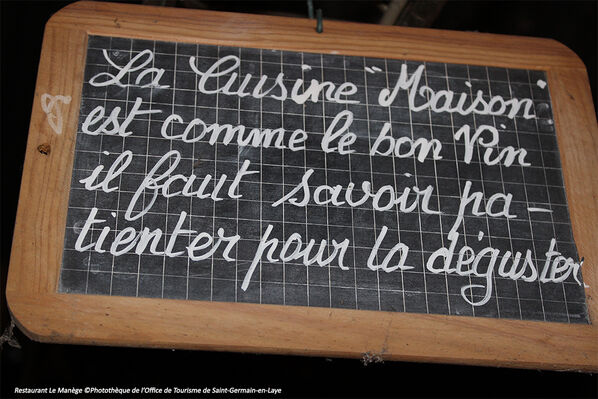 La Cuisine "Maison"
est comme le bon Vin
il faut savoir pa-
tienter pour la déguster
Restaurant Le Manège ©Photothèque de l'Office de Tourisme de Saint-Germain-en-Laye